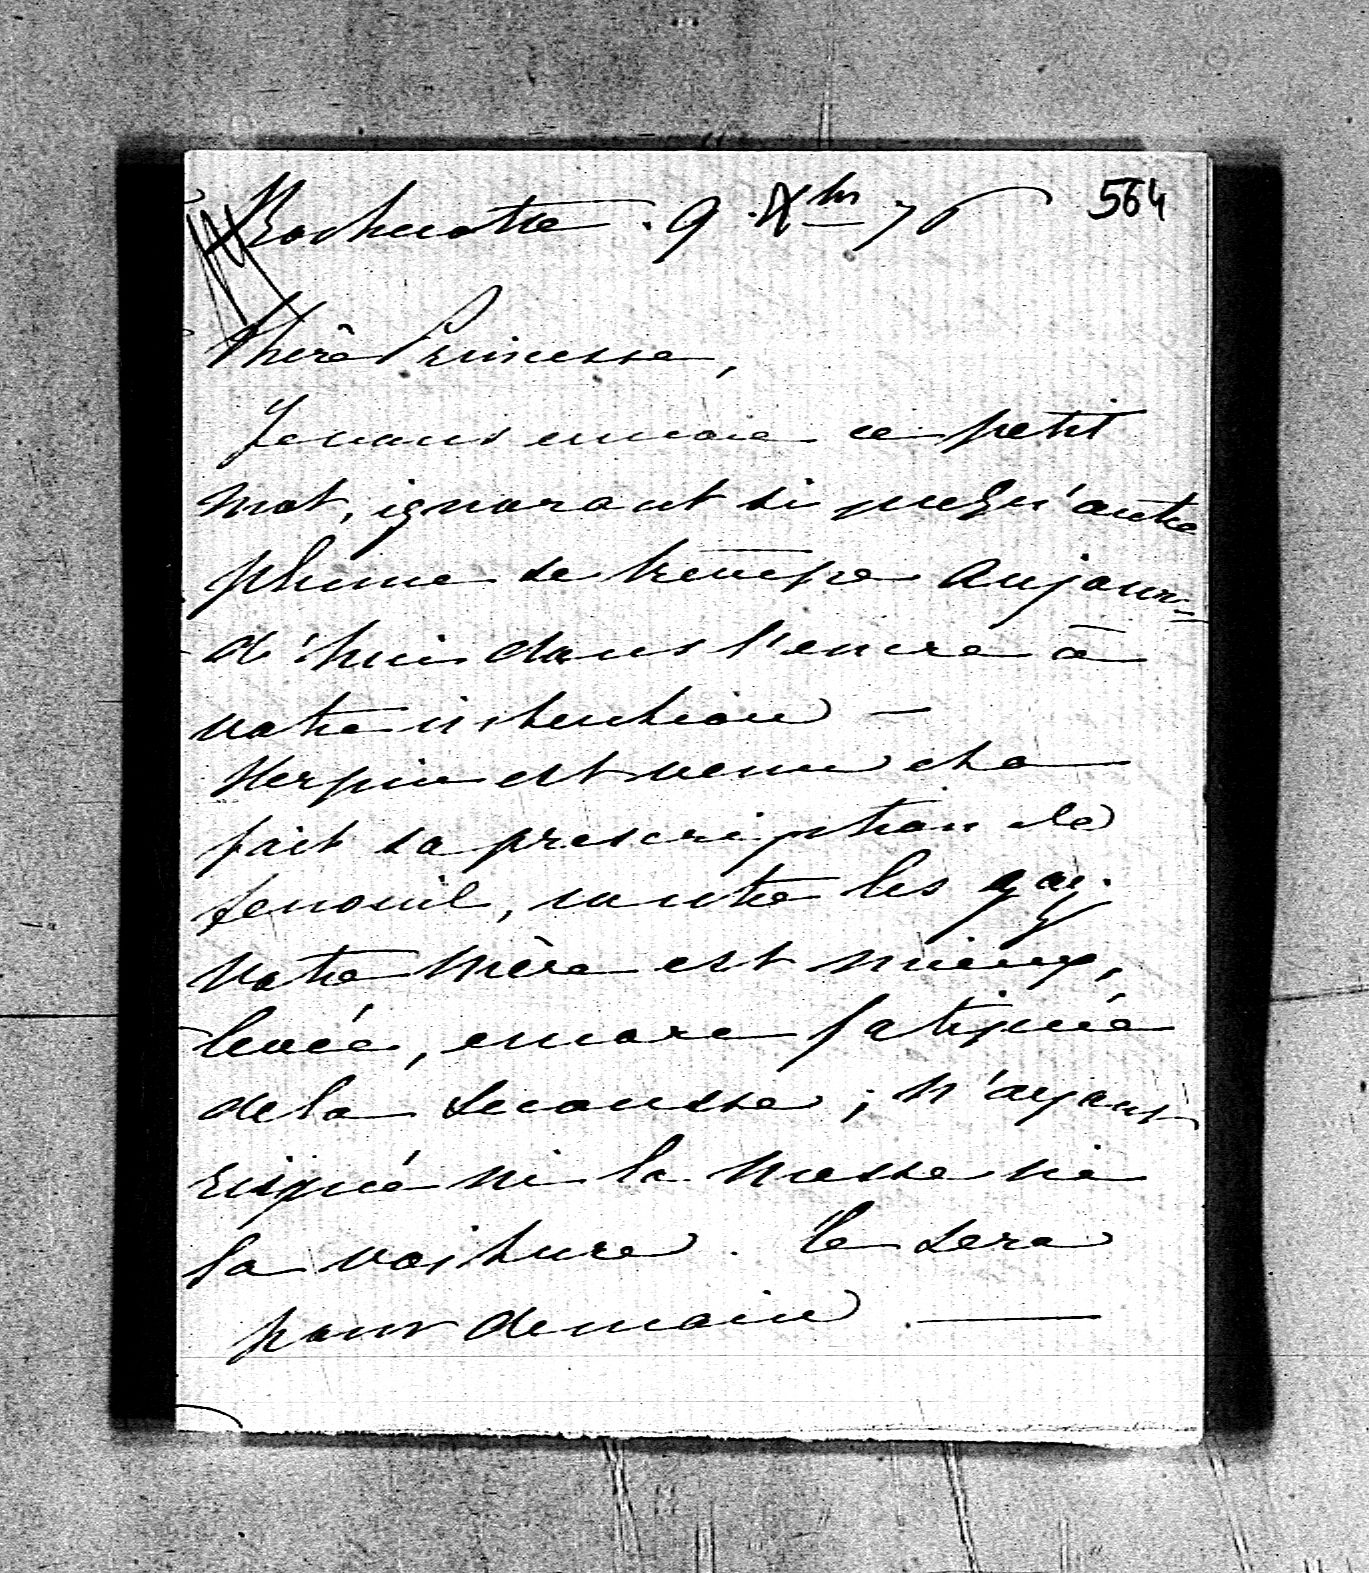 Rochecotte . 9 Xbr 76 564
Chère Princesse,
Je vous envoie ce petit
mot, ignorant si quelqu'autre
plume se trempe aujour=
d'hui dans l'encre à
votre intention —
Herpin est venu et a
fait sa prescription de
fenouil, contre les gaz.
Votre mère est mieux,
levée, encore fatiguée
de la secousse ; n'ayant
risqué ni la messe ni
la voiture. Ce sera
pour demain . —